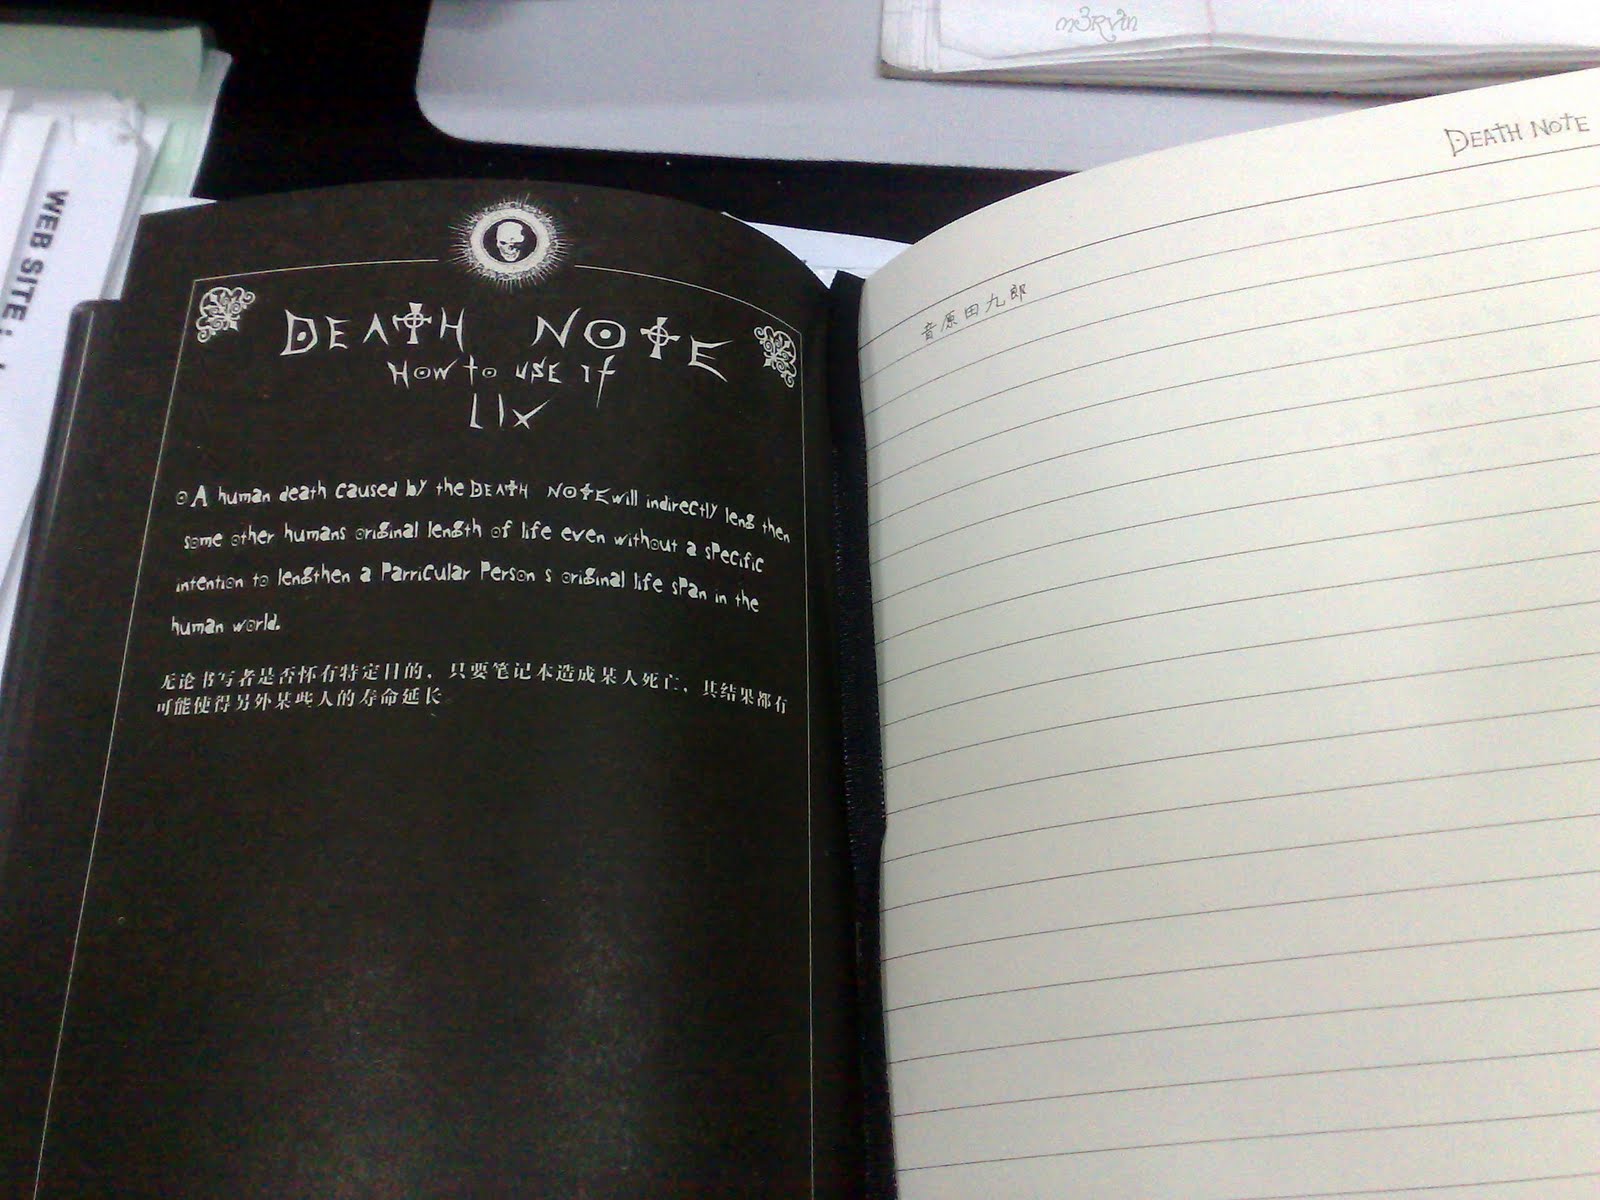 m3Rvin
WEB SITE :
DEATH NOTE
HOW to USE IT
LIX
A human death caused by the DEATH NOTE will indirectly leng then
some other humans original length of life even without a specific
intention to lengthen a Parricular Person s original life span in the
human world.
无论书写者是否怀有特定目的，只要笔记本造成某人死亡，其结果都有
可能使得另外某些人的寿命延长
DEATH NOTE
音原田九郎